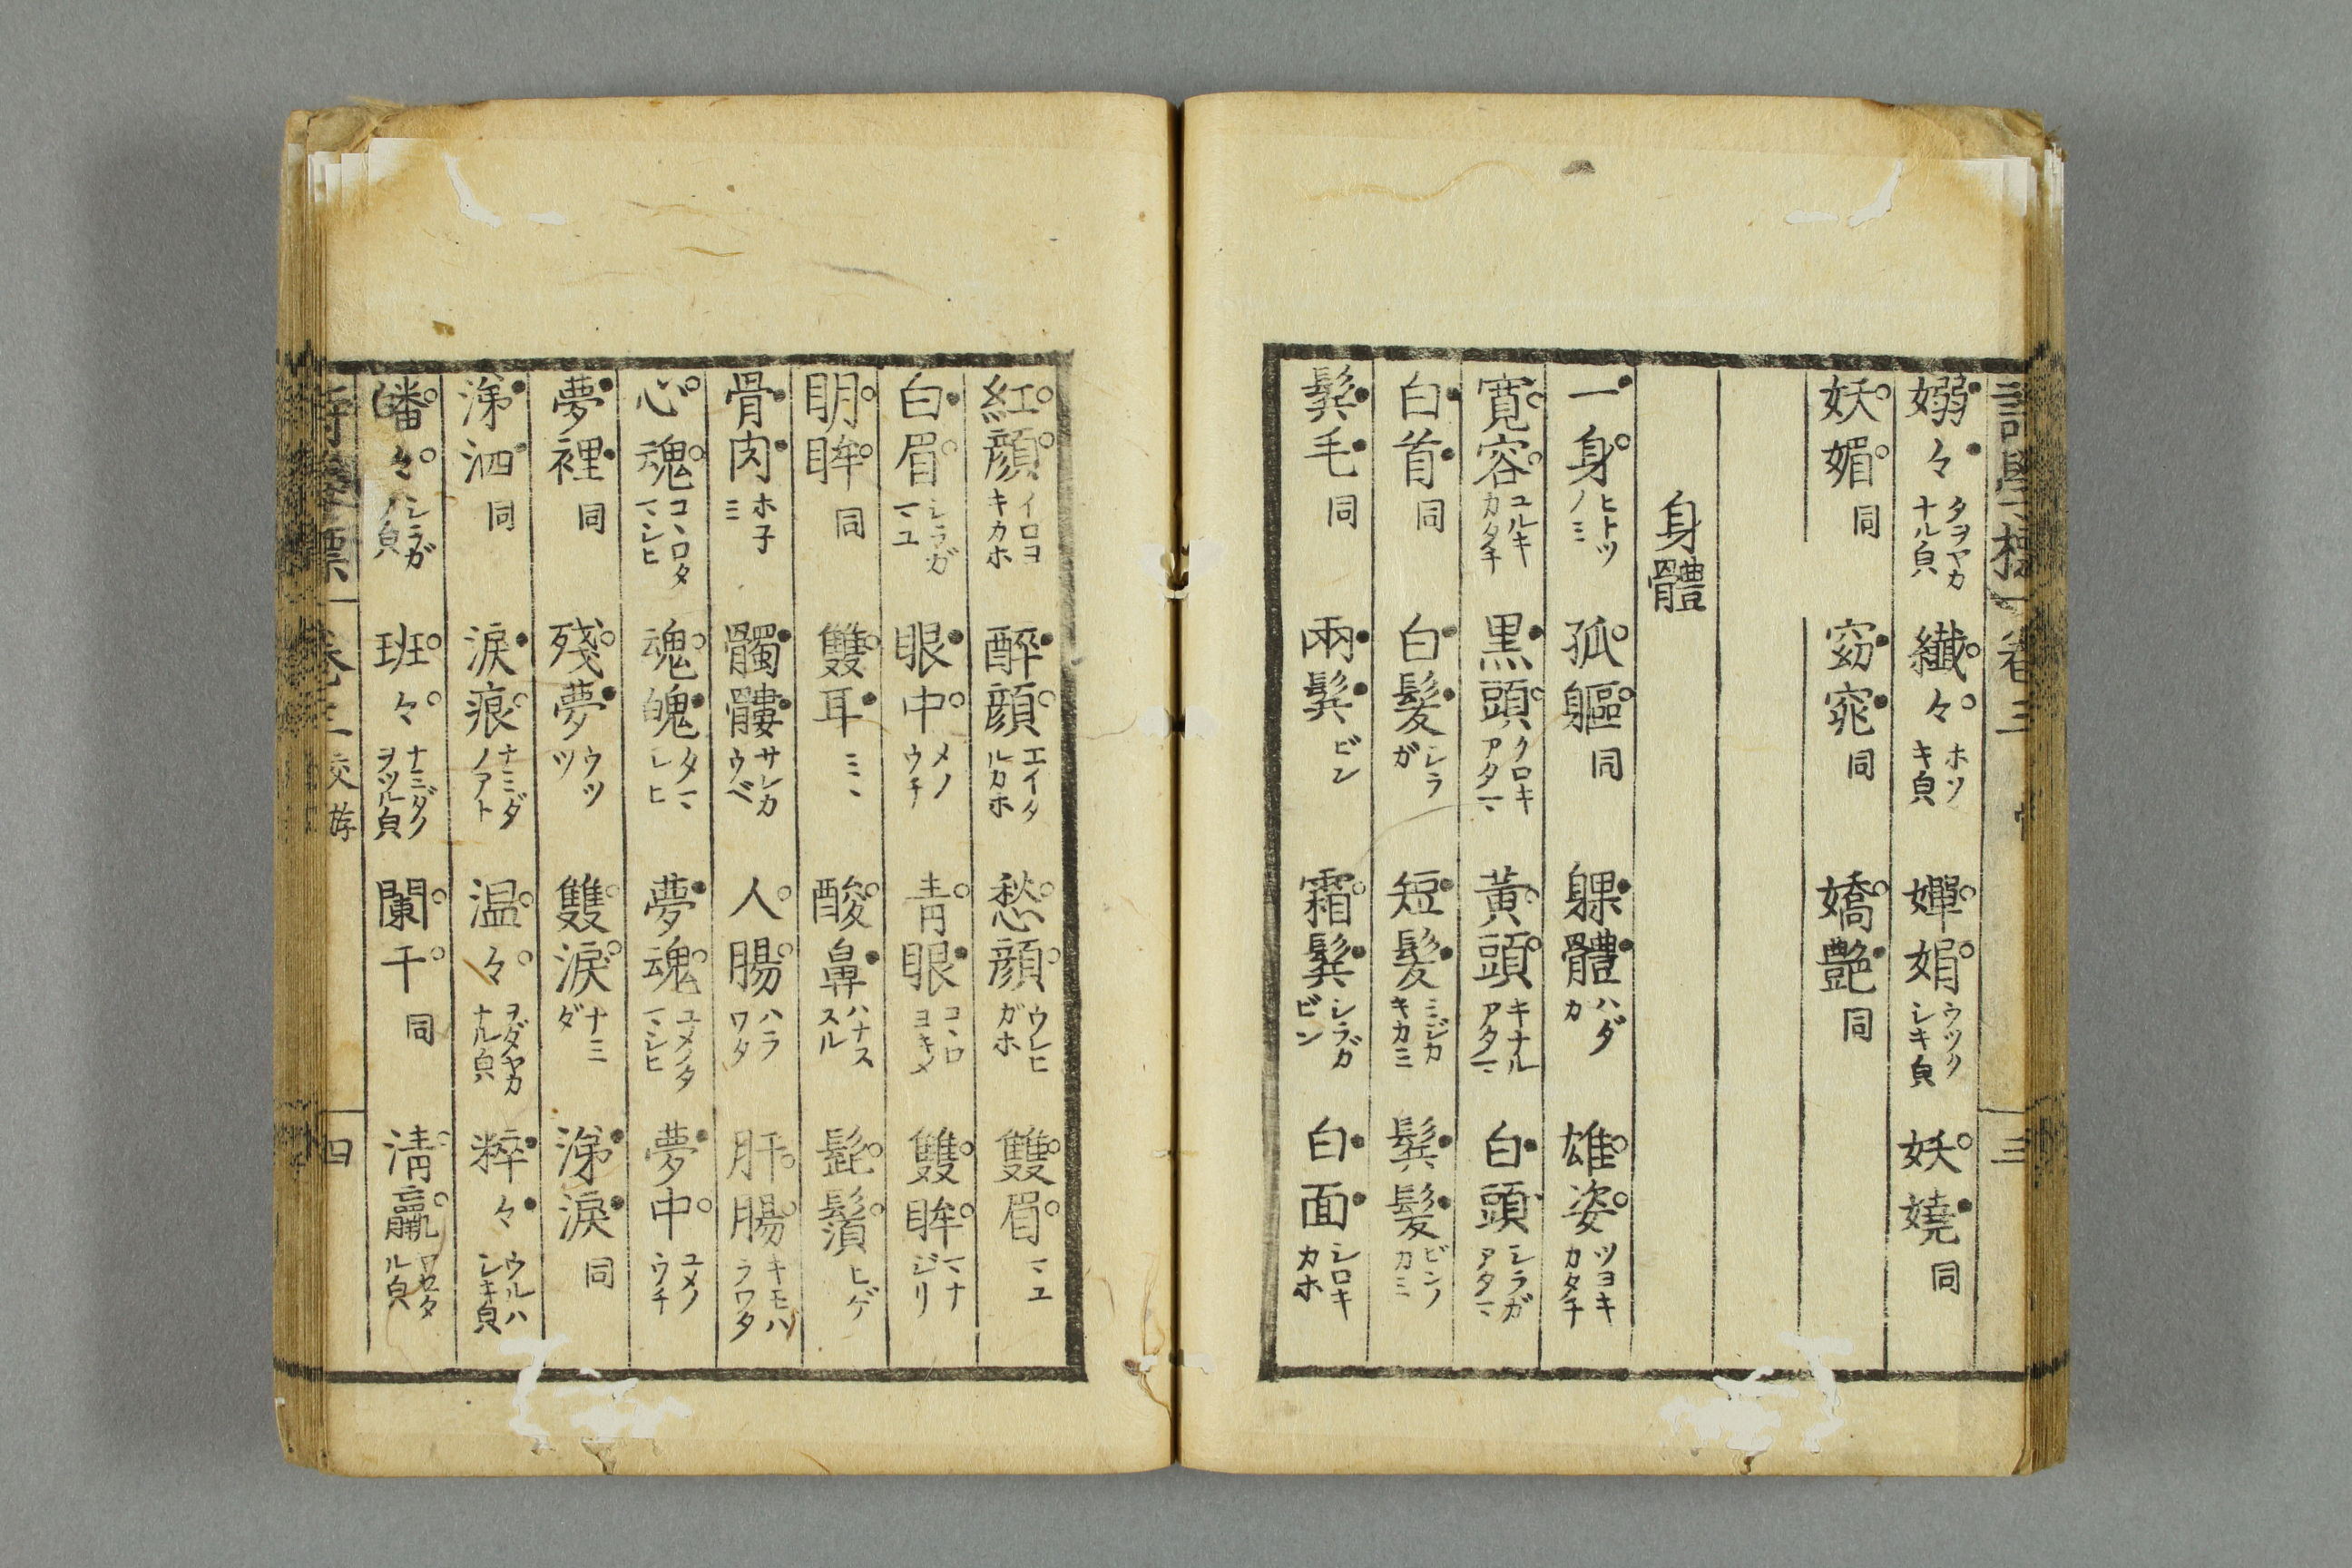 卷三 三
嫋々 タヲヤカナル皃 纖々 ホソキ皃 嬋娟 ウツクシキ皃 妖嬈 同
妖媚 同 窈窕 同 嬌艶 同
身體
一身 ヒトツノミ 孤軀 同 躶體 ハダカ 雄姿 ツヨキカタチ
寛容 ユルキカタチ 黒頭 クロキアタマ 黄頭 キナルアタマ 白頭 シラガアタマ
白首 同 白髪 シラガ 短髪 ミジカキカミ 鬂髪 ビンノカミ
鬂毛 同 兩鬂 ビン 霜鬂 シラガビン 白面 シロキカホ
紅顔 イロヨキカホ 醉顔 エイタルカホ 愁顔 ウレヒガホ 雙眉 マユ
白眉 シラガマユ 眼中 メノウチ 青眼 コヽロヨキメ 雙眸 マナジリ
明眸 同 雙耳 ミヽ 酸鼻 ハナススル 髭鬚 ヒゲ
骨肉 ホ子ミ 髑髏 サレカウベ 人腸 ハラワタ 肝腸 キモハラワタ
心魂 コヽロタマシヒ 魂魄 タマシヒ 夢魂 ユメノタマシヒ 夢中 ユメノウチ
夢裡 同 殘夢 ウツツ 雙淚 ナミダ 涕淚 同
涕泗 同 淚痕 ナミダノアト 温々 ヲダヤカナル皃 粹々 ウルハシキ皃
皤々 シラガノ皃 班々 ナミダノヲツル皃 闌干 同 淸羸 ワカセタル皃
卷三 交游 四